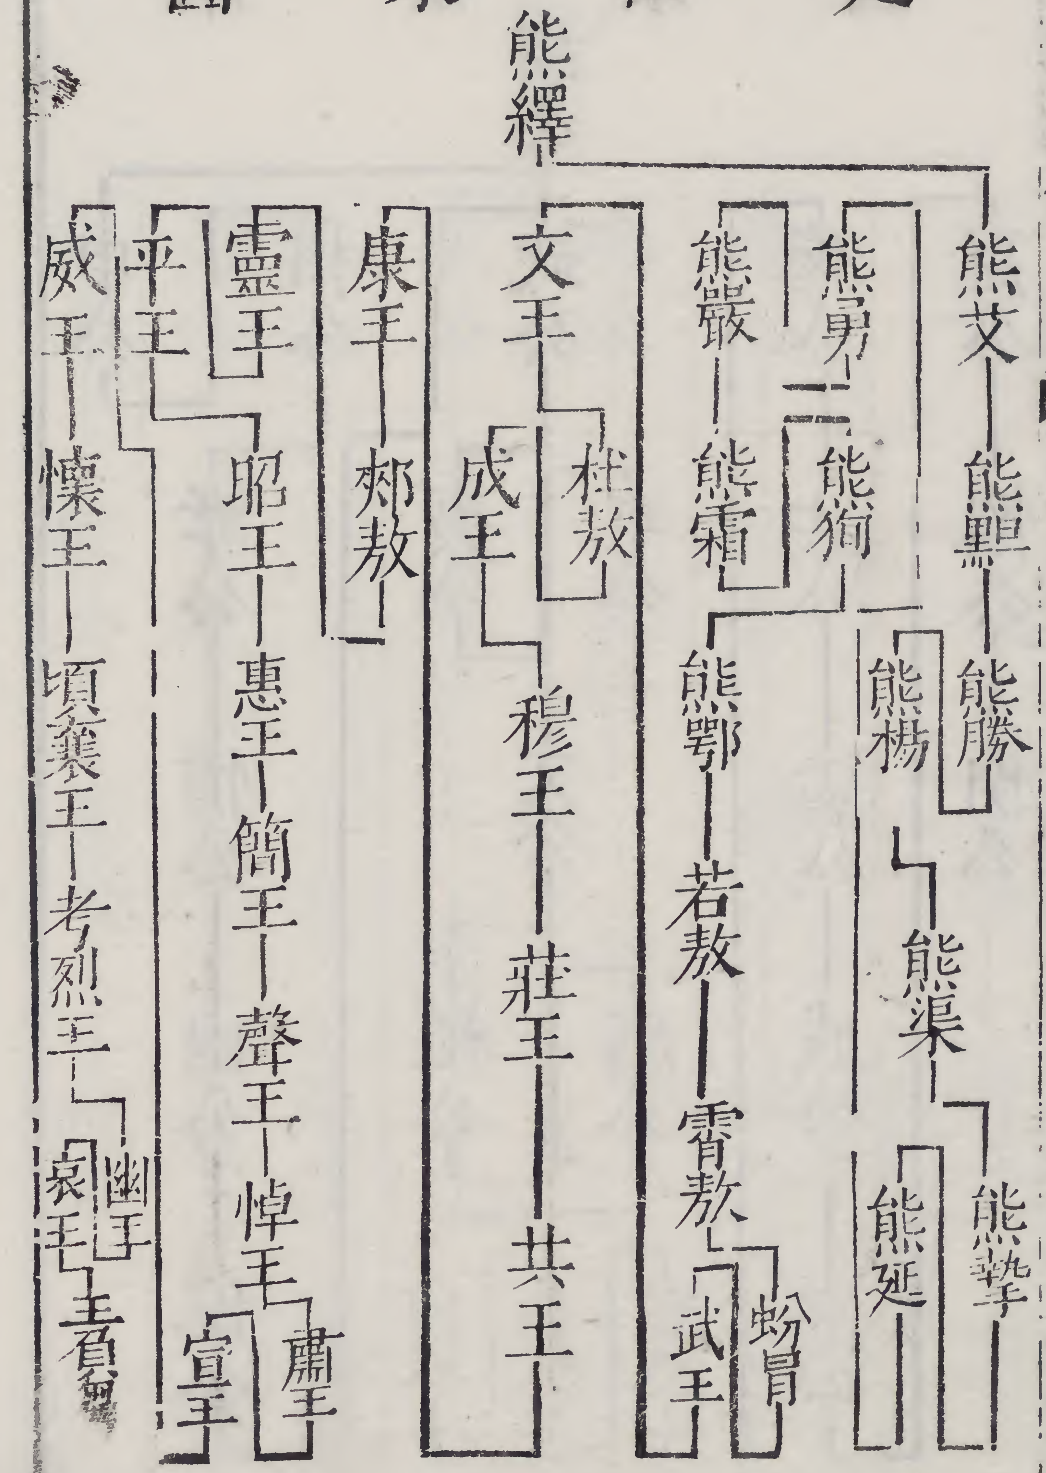 熊繹
熊艾
熊䵣
熊勝
熊楊
熊渠
熊摯
熊延
熊勇
熊嚴
熊霜
熊徇
熊鄂
若敖
霄敖
蚡冒
武王
文王
杜敖
成王
穆王
莊王
共王
康王
郟敖
靈王
平王
昭王
惠王
簡王
聲王
悼王
肅王
宣王
威王
懷王
頃襄王
考烈王
幽王
哀王
王負芻